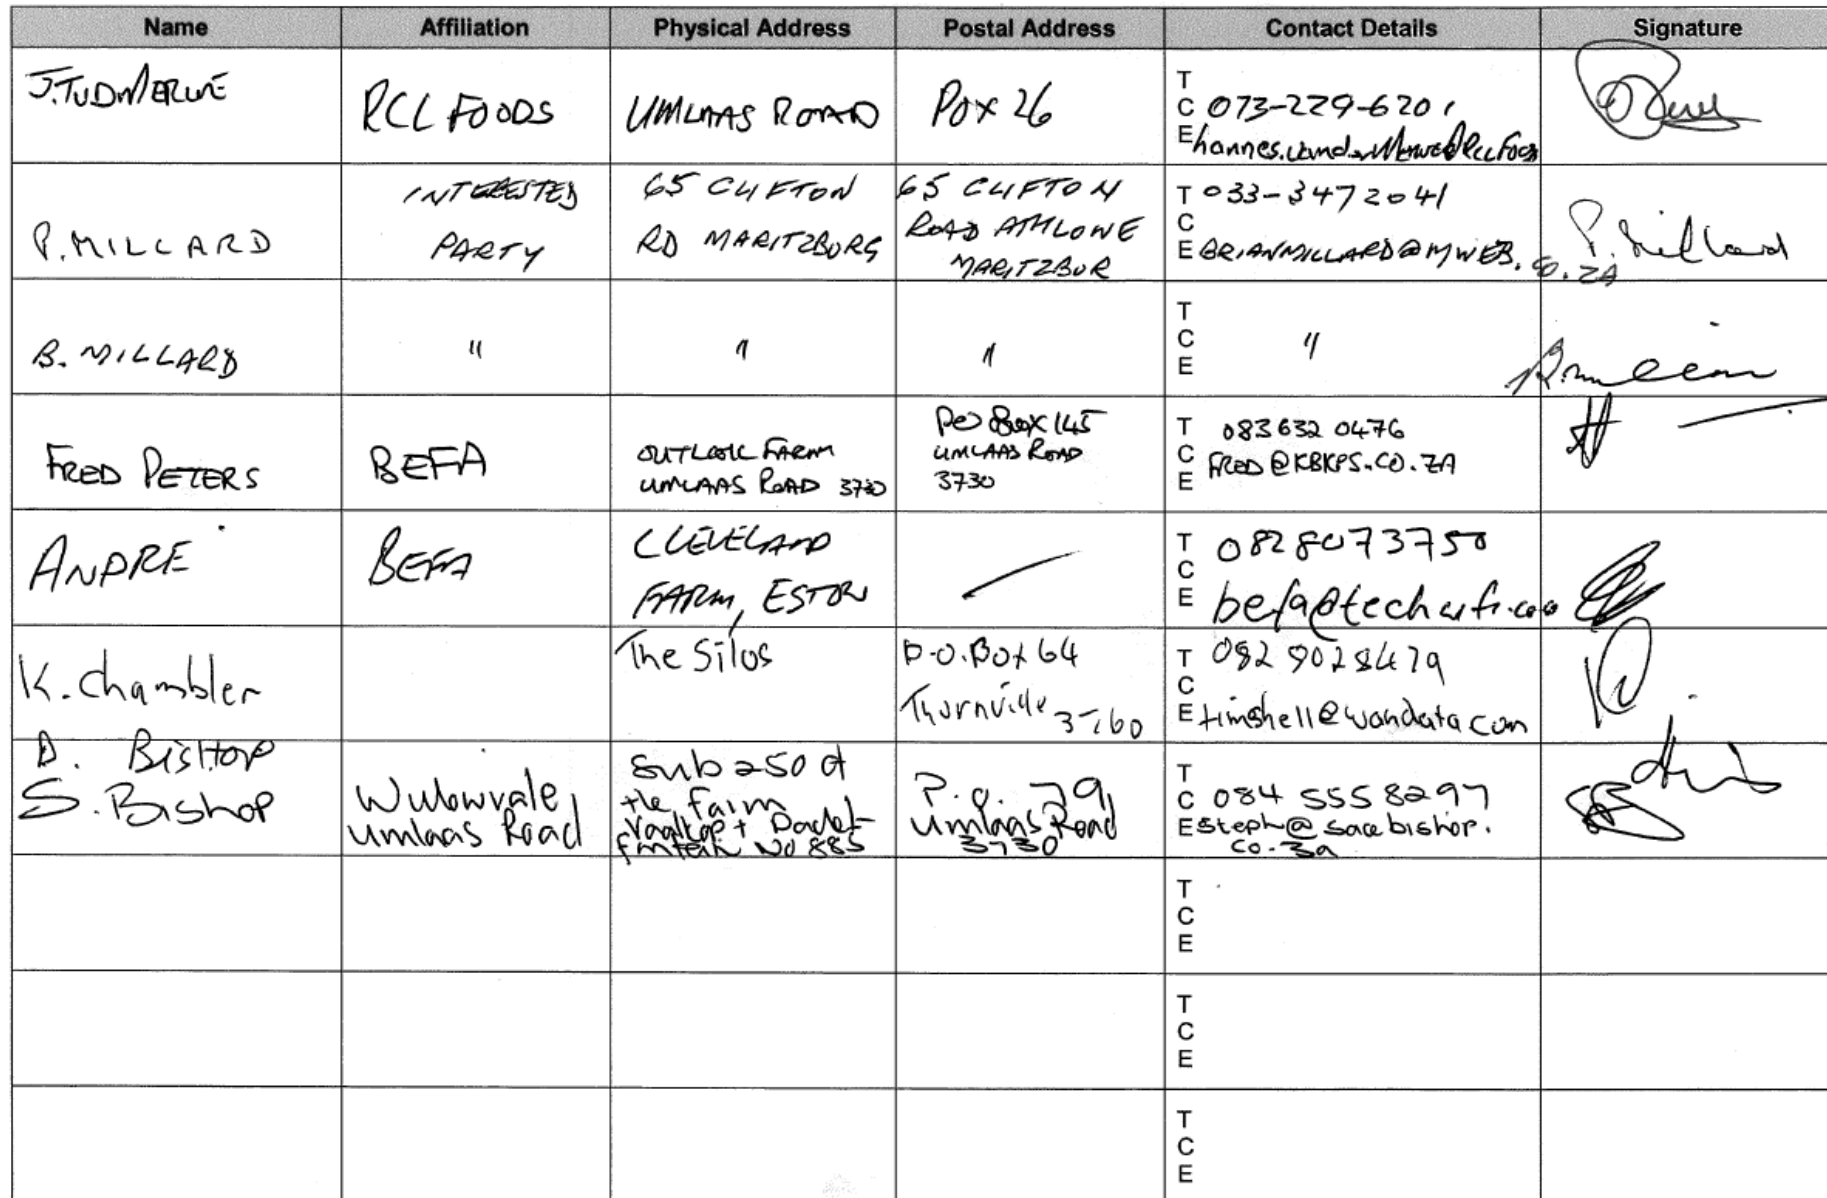 Name Affiliation Physical Address Postal Address Contact Details Signature
J.TVDMERWE RCL FOODS UMLAAS ROAD POX 26
T
C 073-229-6201
E hannes.vandermerwe@RCLFoods
P. MILLARD INTERESTED PARTY 65 CLIFTON RD MARITZBURG 65 CLIFTON ROAD ATHLONE MARITZBUR
T 033-3472041
C
E BRIANMILLARD@MWEB.CO.ZA
P. Millard
B. MILLARD " " " "
T
C
E
FRED PETERS BEFA OUTLOOK FARM UMLAAS ROAD 3730 PO Box 145 UMLAAS ROAD 3730
T 083 632 0476
C FRED@KBKPS.CO.ZA
E
ANDRE BEFA CLEVELAND FARM, ESTON
T 0828073750
C
E
K. Chambler The Silos P.O. Box 64 Thornville 3760
T 082 9028479
C
E timshell@wandata.com
D. Bishop
S. Bishop Umlaas Road Sub 250 of the Farm No 885 P.O. 79 Umlaas Road 3730
T
C 084 555 8297
E steph@ bishop.
co.za
T
C
E
T
C
E
T
C
E